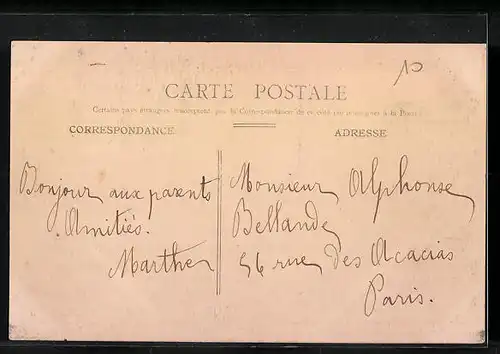 10
CARTE POSTALE
Certains pays étrangers n'acceptent pas la Correspondance de ce côté (se renseigner à la Poste)
CORRESPONDANCE
ADRESSE
Bonjour aux parents
Amitiés.
Marthe
Monsieur Alphonse
Bellande
56 rue des Acacias
Paris.